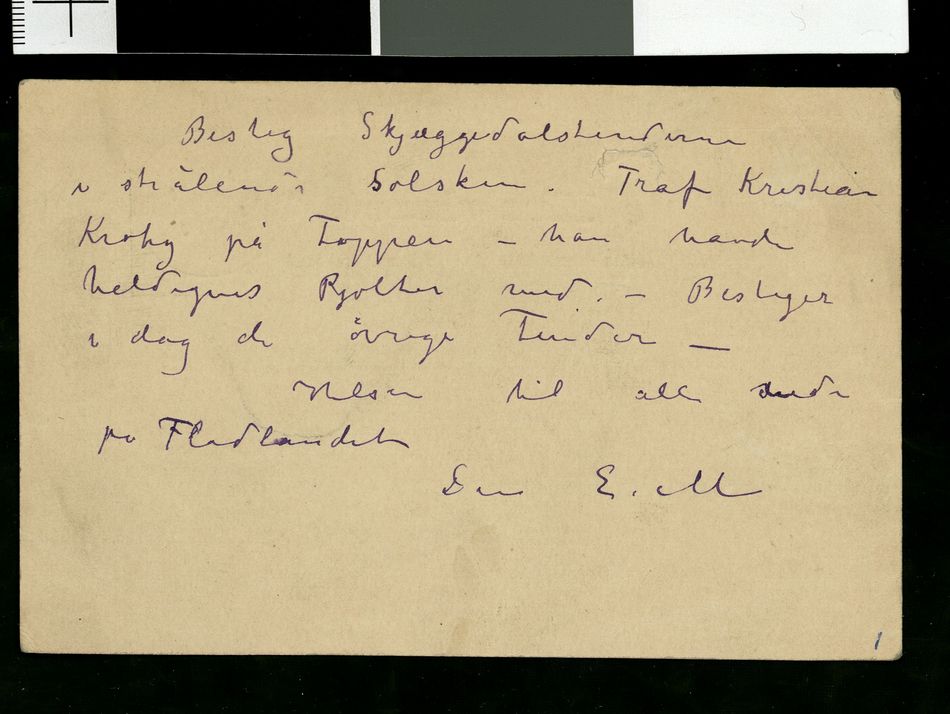 Besteg Skjæggedalstinderne
i strålende Solskin. Traf Kristian
Krohg på Toppen – han havde
heldigvis Pjolter med. – Bestiger
i dag de øvrige Tinder —
Hilsen til alle dernede
på Fladlandet
Din E. M
1